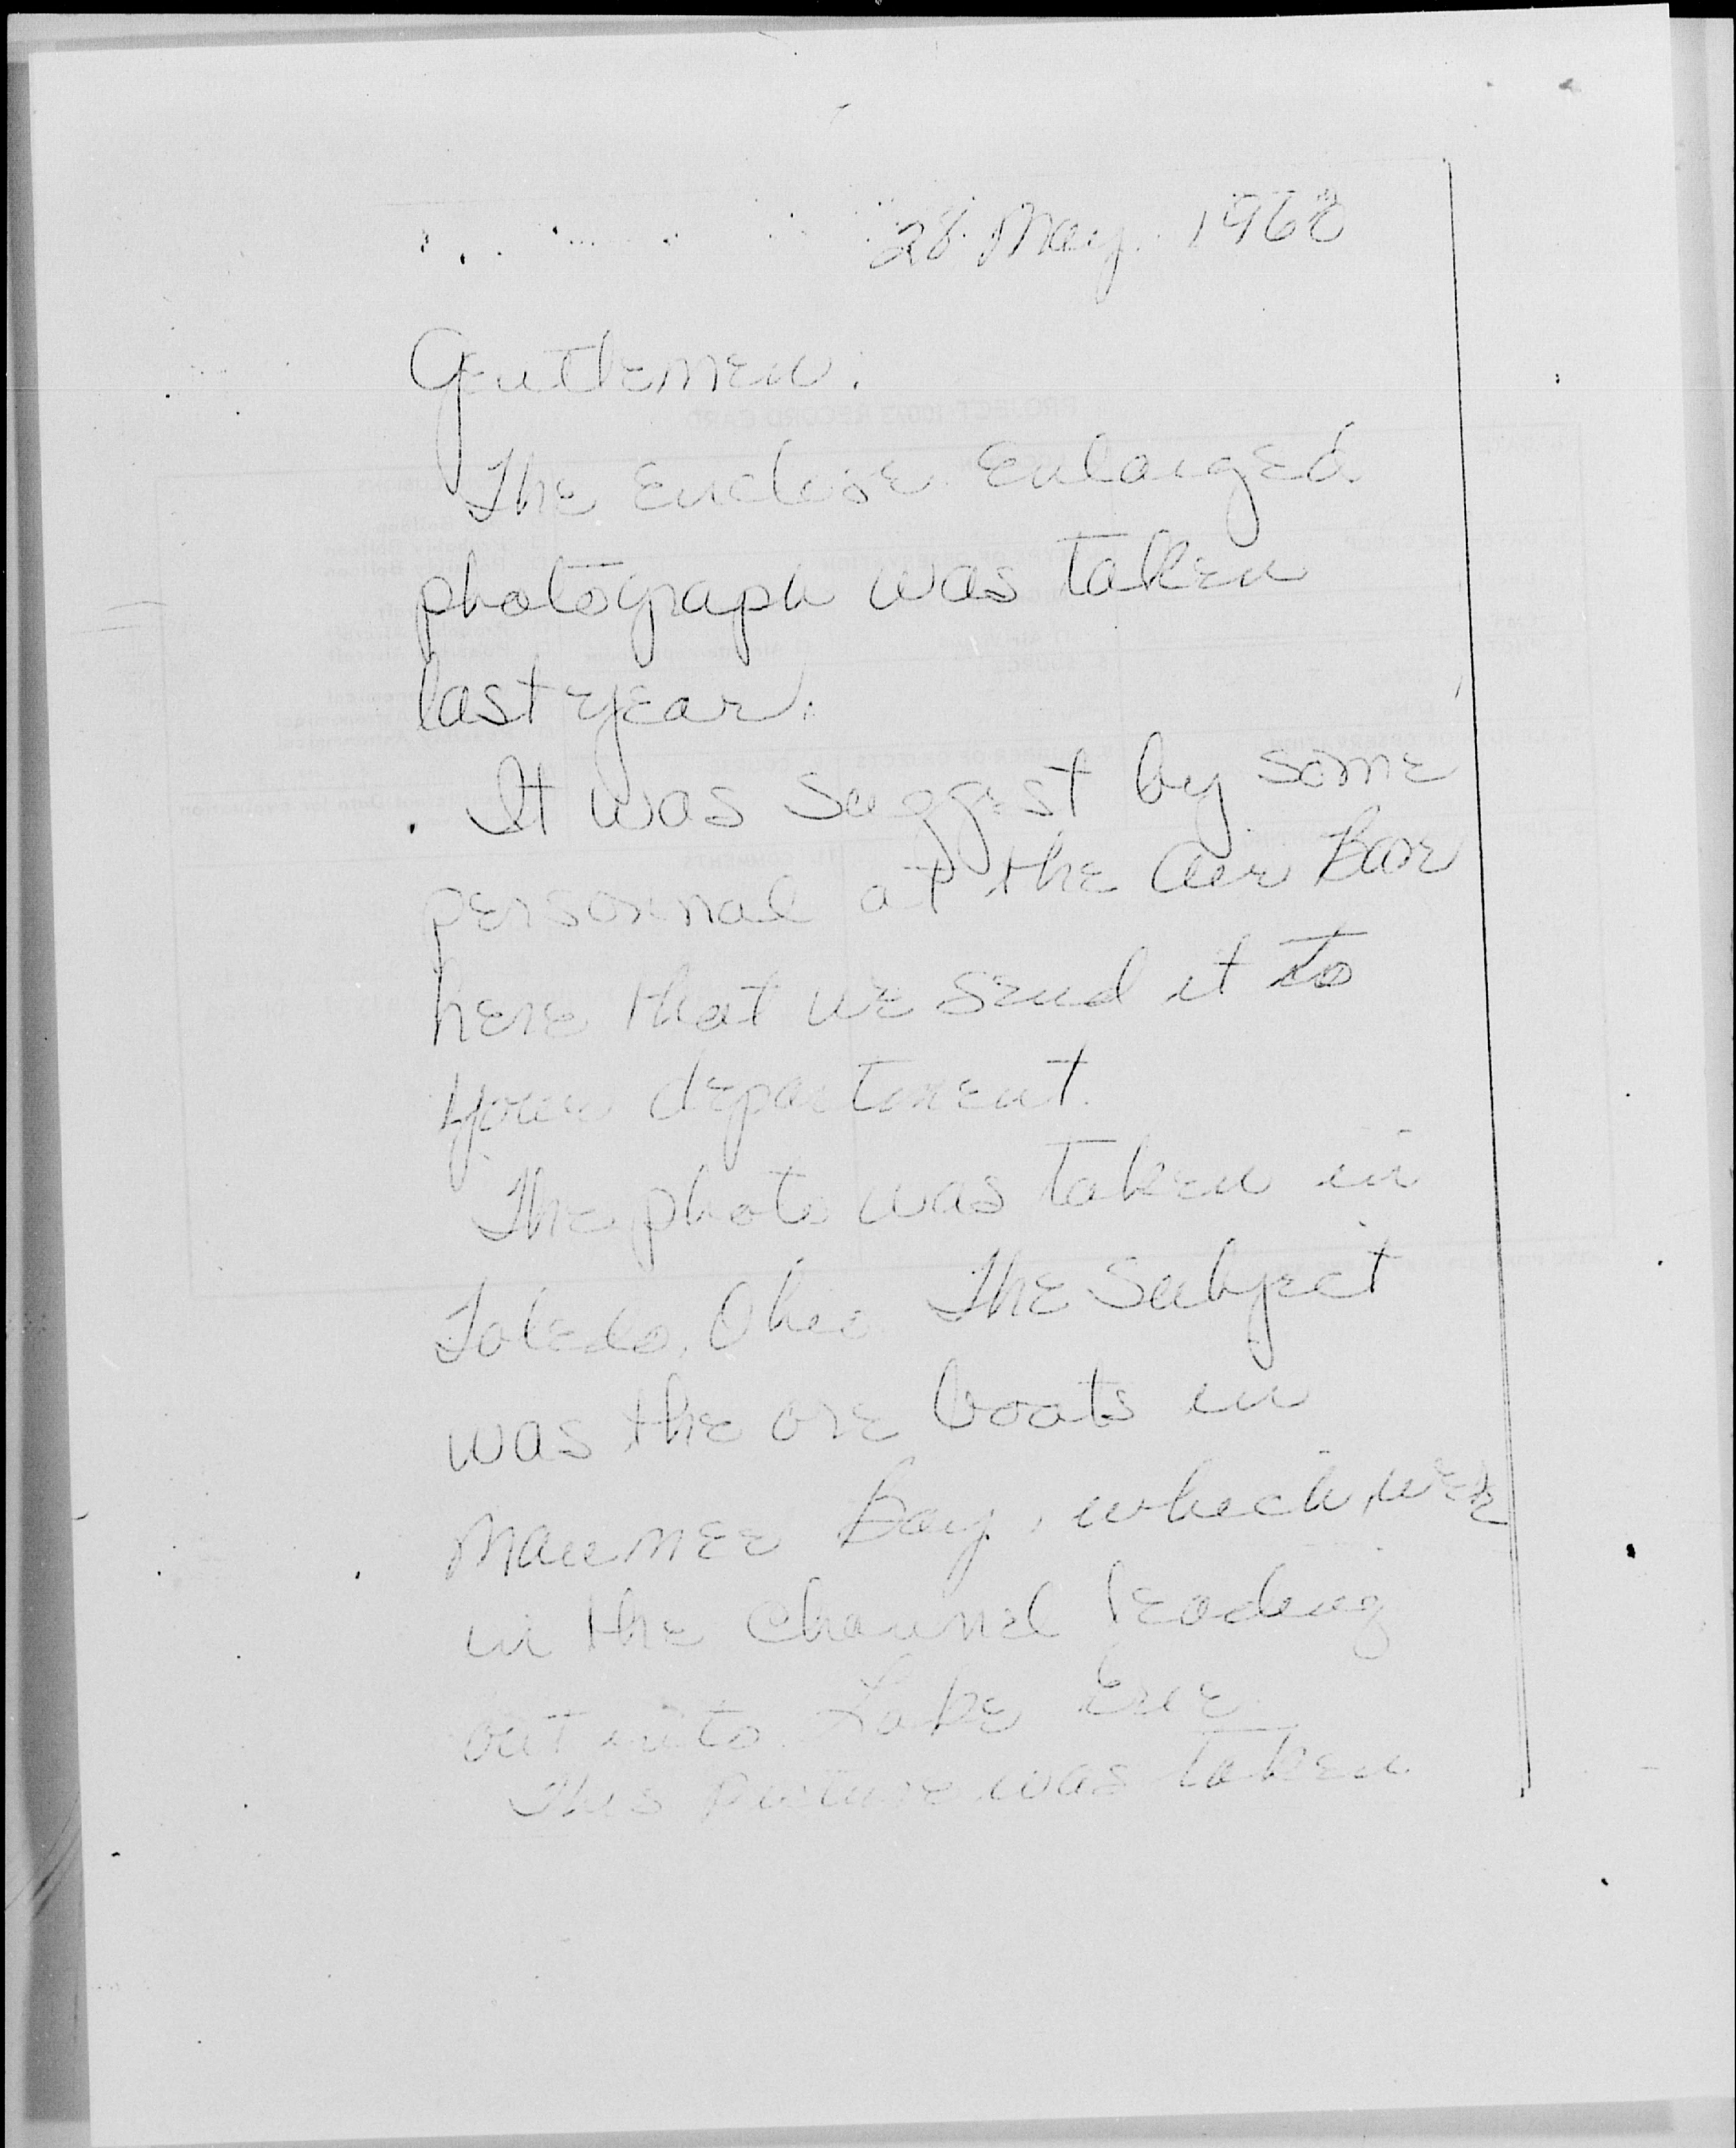 28 May 1968
Gentlemen:
The Enclose Enlarged
photograph was taken
last year.
It was suggest by some
personnal at the Air Base
here that we send it to
your department.
The photo was taken in
Toledo, Ohio The Subject
was the ore boats in
Maumee Bay, which were
in the channel leading
out into Lake Erie
This picture was taken